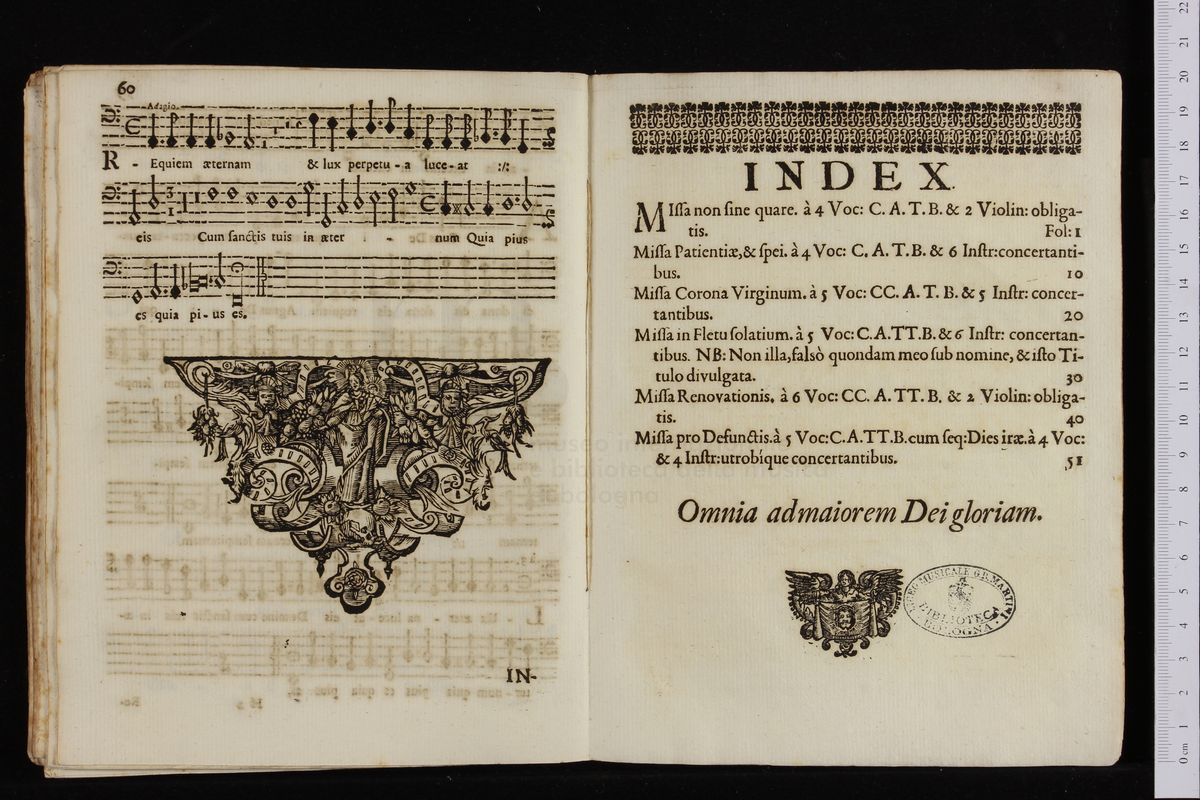 60
Adagio.
R - Equiem æternam & lux perpetu - a luce - at :/:
eis Cum sanctis tuis in æter - num Quia pius
es quia pi - us es.
IN-
INDEX.
MIſſa non ſine quare. à 4 Voc: C. A. T. B. & 2 Violin: obliga-
tis. Fol: 1
Miſſa Patientiæ, & ſpei. à 4 Voc: C. A. T. B. & 6 Inſtr: concertanti-
bus. 10
Miſſa Corona Virginum. à 5 Voc: CC. A. T. B. & 5 Inſtr: concer-
tantibus. 20
Miſſa in Fletu ſolatium. à 5 Voc: C. A. TT. B. & 6 Inſtr: concertan-
tibus. NB: Non illa, falsò quondam meo ſub nomine, & iſto Ti-
tulo divulgata. 30
Miſſa Renovationis, à 6 Voc: CC. A. TT. B. & 2 Violin: obliga-
tis. 40
Miſſa pro Defunctis. à 5 Voc: C. A. TT. B. cum ſeq: Dies iræ. à 4 Voc:
& 4 Inſtr: utrobíque concertantibus. 51
Omnia ad maiorem Dei gloriam.
MUSICALE G.B. MARTINI
BIBLIOTECA
BOLOGNA
0 cm 1 2 3 4 5 6 7 8 9 10 11 12 13 14 15 16 17 18 19 20 21 22